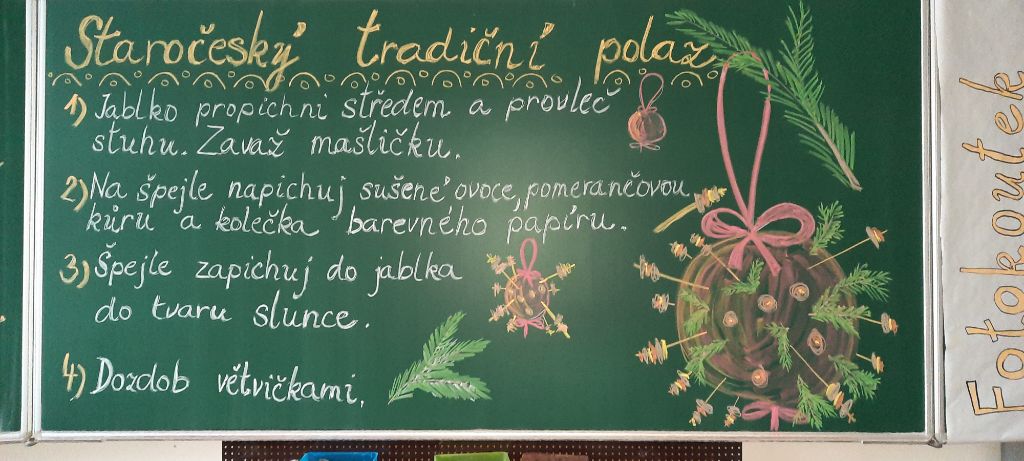 Staročeský tradiční polaz
1) Jablko propichni středem a provleč
stuhu. Zavaž mašličku.
2) Na špejle napichuj sušené ovoce, pomerančovou
kůru a kolečka barevného papíru.
3) Špejle zapichuj do jablka
do tvaru slunce.
4) Dozdob větvičkami.
Fotokoutek